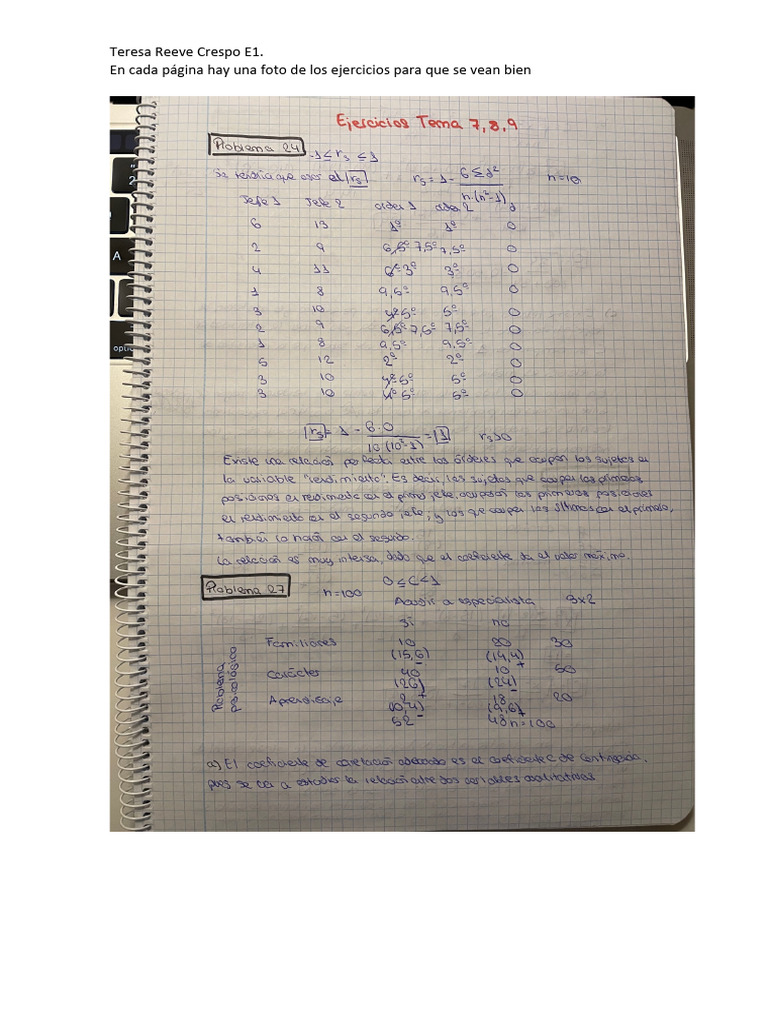 Teresa Reeve Crespo E1.
En cada página hay una foto de los ejercicios para que se vean bien
Ejercicios Tema 7, 8, 9
Problema 24 -1 ≤ rs ≤ 1
Se tendría que usar el rs rs = 1 - 6 Σ d² / n·(n²-1) n=10
Jefe 1 Jefe 2 orden 1 orden 2 d
6 13 1º 1º 0
2 9 6,5º 7,5º 7,5º 0
4 11 3º 3º 0
1 8 9,5º 9,5º 0
3 10 4º 5º 5º 0
2 9 6,5º 7,5º 7,5º 0
1 8 9,5º 9,5º 0
5 12 2º 2º 0
3 10 4º 5º 5º 0
3 10 4º 5º 5º 0
rs = 1 - 6·0 / 10(10²-1) = 1 rs>0
Existe una relación perfecta entre los órdenes que ocupan los sujetos en
la variable "rendimiento". Es decir, los sujetos que ocupan las primeras
posiciones en rendimiento en el primer jefe, ocuparán las primeras posiciones
en rendimiento en el segundo jefe, y los que ocupan las últimas en el primero,
también lo harán en el segundo.
La relación es muy intensa, dado que el coeficiente da el valor máximo.
Problema 27 n=100 0 ≤ C < 1
Acudir a especialista 3x2
sí no
Problema psicológico
Familiares 10 20 30
(15,6) - (14,4) +
Carácter 40 10 50
(26) + (24) -
Aprendizaje 2 18 20
(10,4) - (9,6) +
52 48 n=100
a) El coeficiente de correlación adecuado es el coeficiente C de contingencia,
pues se va a estudiar la relación entre dos variables cualitativas